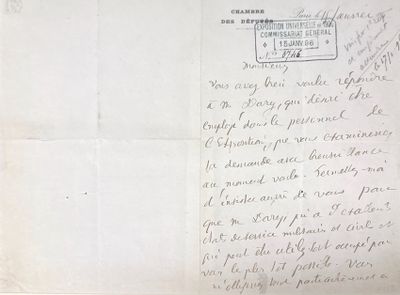 CHAMBRE
DES DÉPUTÉS
Paris le Janvier
EXPOSITION UNIVERSELLE DE
COMMISSARIAT GÉNÉRAL
15 JANV. 96
Monsieur
Vous avez bien voulu répondre
à M. Darzy, qui désire être
employé dans le personnel de
l'Exposition, que vous examineriez
sa demande avec bienveillance
au moment voulu. Permettez-moi
d'insister auprès de vous pour
que M. Darzy qui a
de service militaires et civils et
qui peut être utile, soit occupé par
vous le plus tôt possible. Vous
m'obligerez tout particulièrement